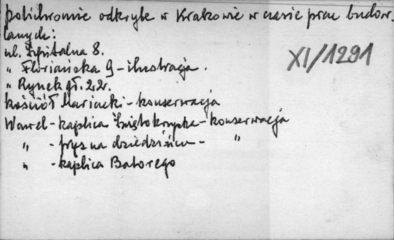 polichromie odkryte w Krakowie w czasie prac budow.
lanych:
ul. Szpitalna 8.
" Floriańska 9 - ilustracja.
" Rynek gł. 22.
XI/1291
kościół Mariacki - konserwacja
Wawel - kaplica Świętokrzyska - konserwacja
" - fryz na dziedzińcu - "
" - kaplica Batorego